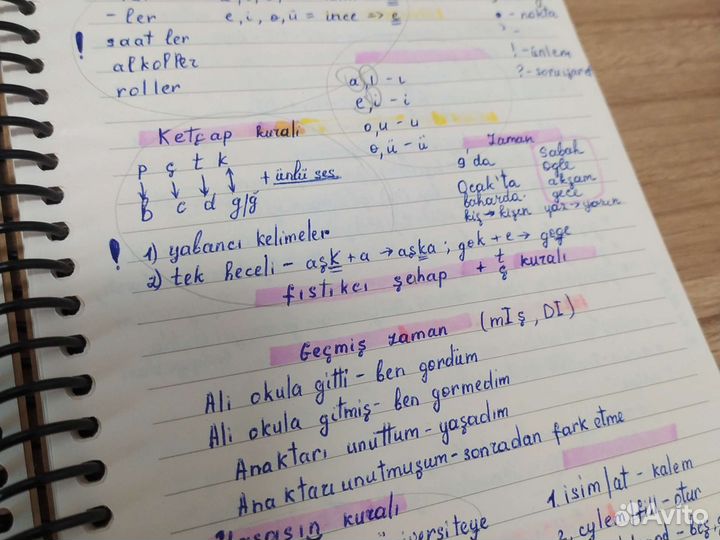 - ler e, i, ö, ü = ince => e
! saatler
alkoller
roller
• - nokta
! - ünlem
a, ı - ı
e, i - i
o, u - u
ö, ü - ü
Ketçap kuralı
p ç t k + ünlü ses
b c d g/ğ
Zaman
9'da
Ocak'ta
baharda
kış → kışın yaz → yazın
Sabah
Öğle
akşam
gece
! 1) yabancı kelimeler
2) tek heceli - aşk + a → aşka ; gök + e → göğe
fıstıkçı şahap + t ç kuralı
Geçmiş zaman (mIş, DI)
Ali okula gitti - ben gördüm
Ali okula gitmiş - ben görmedim
Anaktarı unuttum - yaşadım
Anaktarı unutmuşum - sonradan fark etme
kuralı
1. isim/at - kalem
Avito